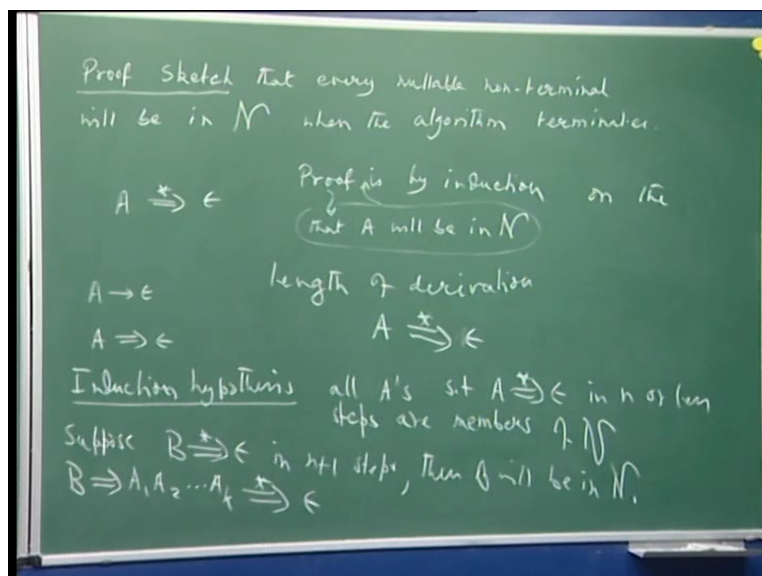 Proof Sketch that every nullable non-terminal
will be in N when the algorithm terminates.
A ⇒* ϵ Proof is by induction on the
that A will be in N
A → ϵ length of derivation
A ⇒ ϵ A ⇒* ϵ
Induction hypothesis all A's s.t A ⇒* ϵ in n or less
steps are members of N
Suppose B ⇒* ϵ in n+1 steps, then B will be in N.
B ⇒ A₁ A₂ ... Aₖ ⇒* ϵ